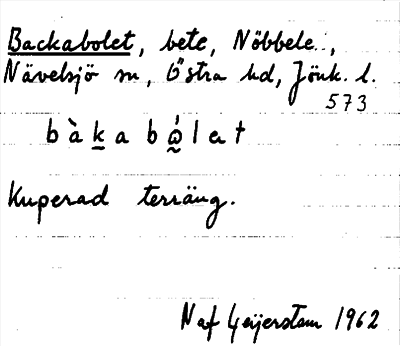 Backabolet, bete, Nöbbele.,
Nävelsjö sn, Östra hd, Jönk. l.
573
bàkabólet
Kuperad terräng.
Naf Geijerstam 1962